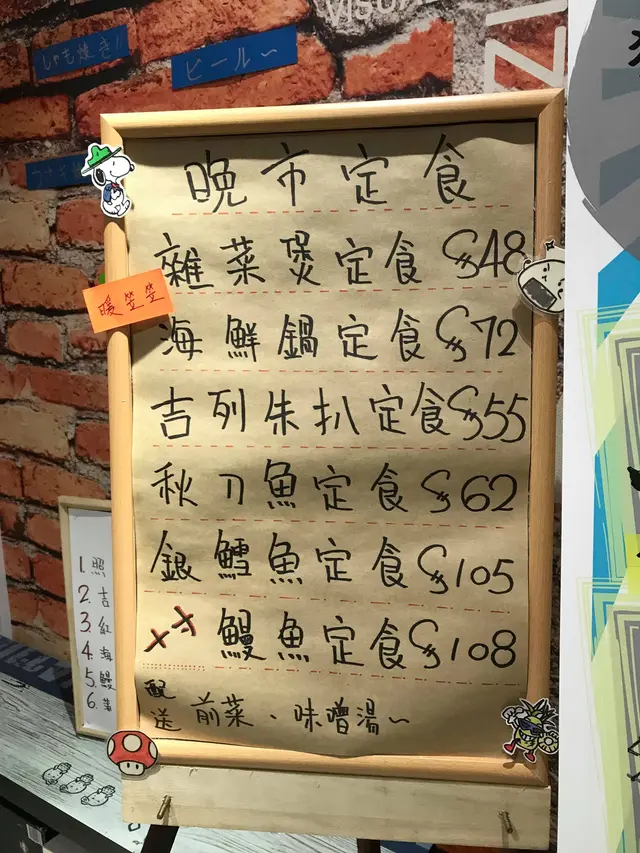 VISUAL
しゃも焼き!
ビール～
晚市定食
雜菜煲定食 $48
暖笠笠
海鮮鍋定食 $72
吉列朱扒定食 $55
秋刀魚定食 $62
銀鱈魚定食 $105
xx 鰻魚定食 $108
配送 前菜、味噌湯～
1. 照
2. 吉
3. 紅
4. 海
5. 鰻
6.